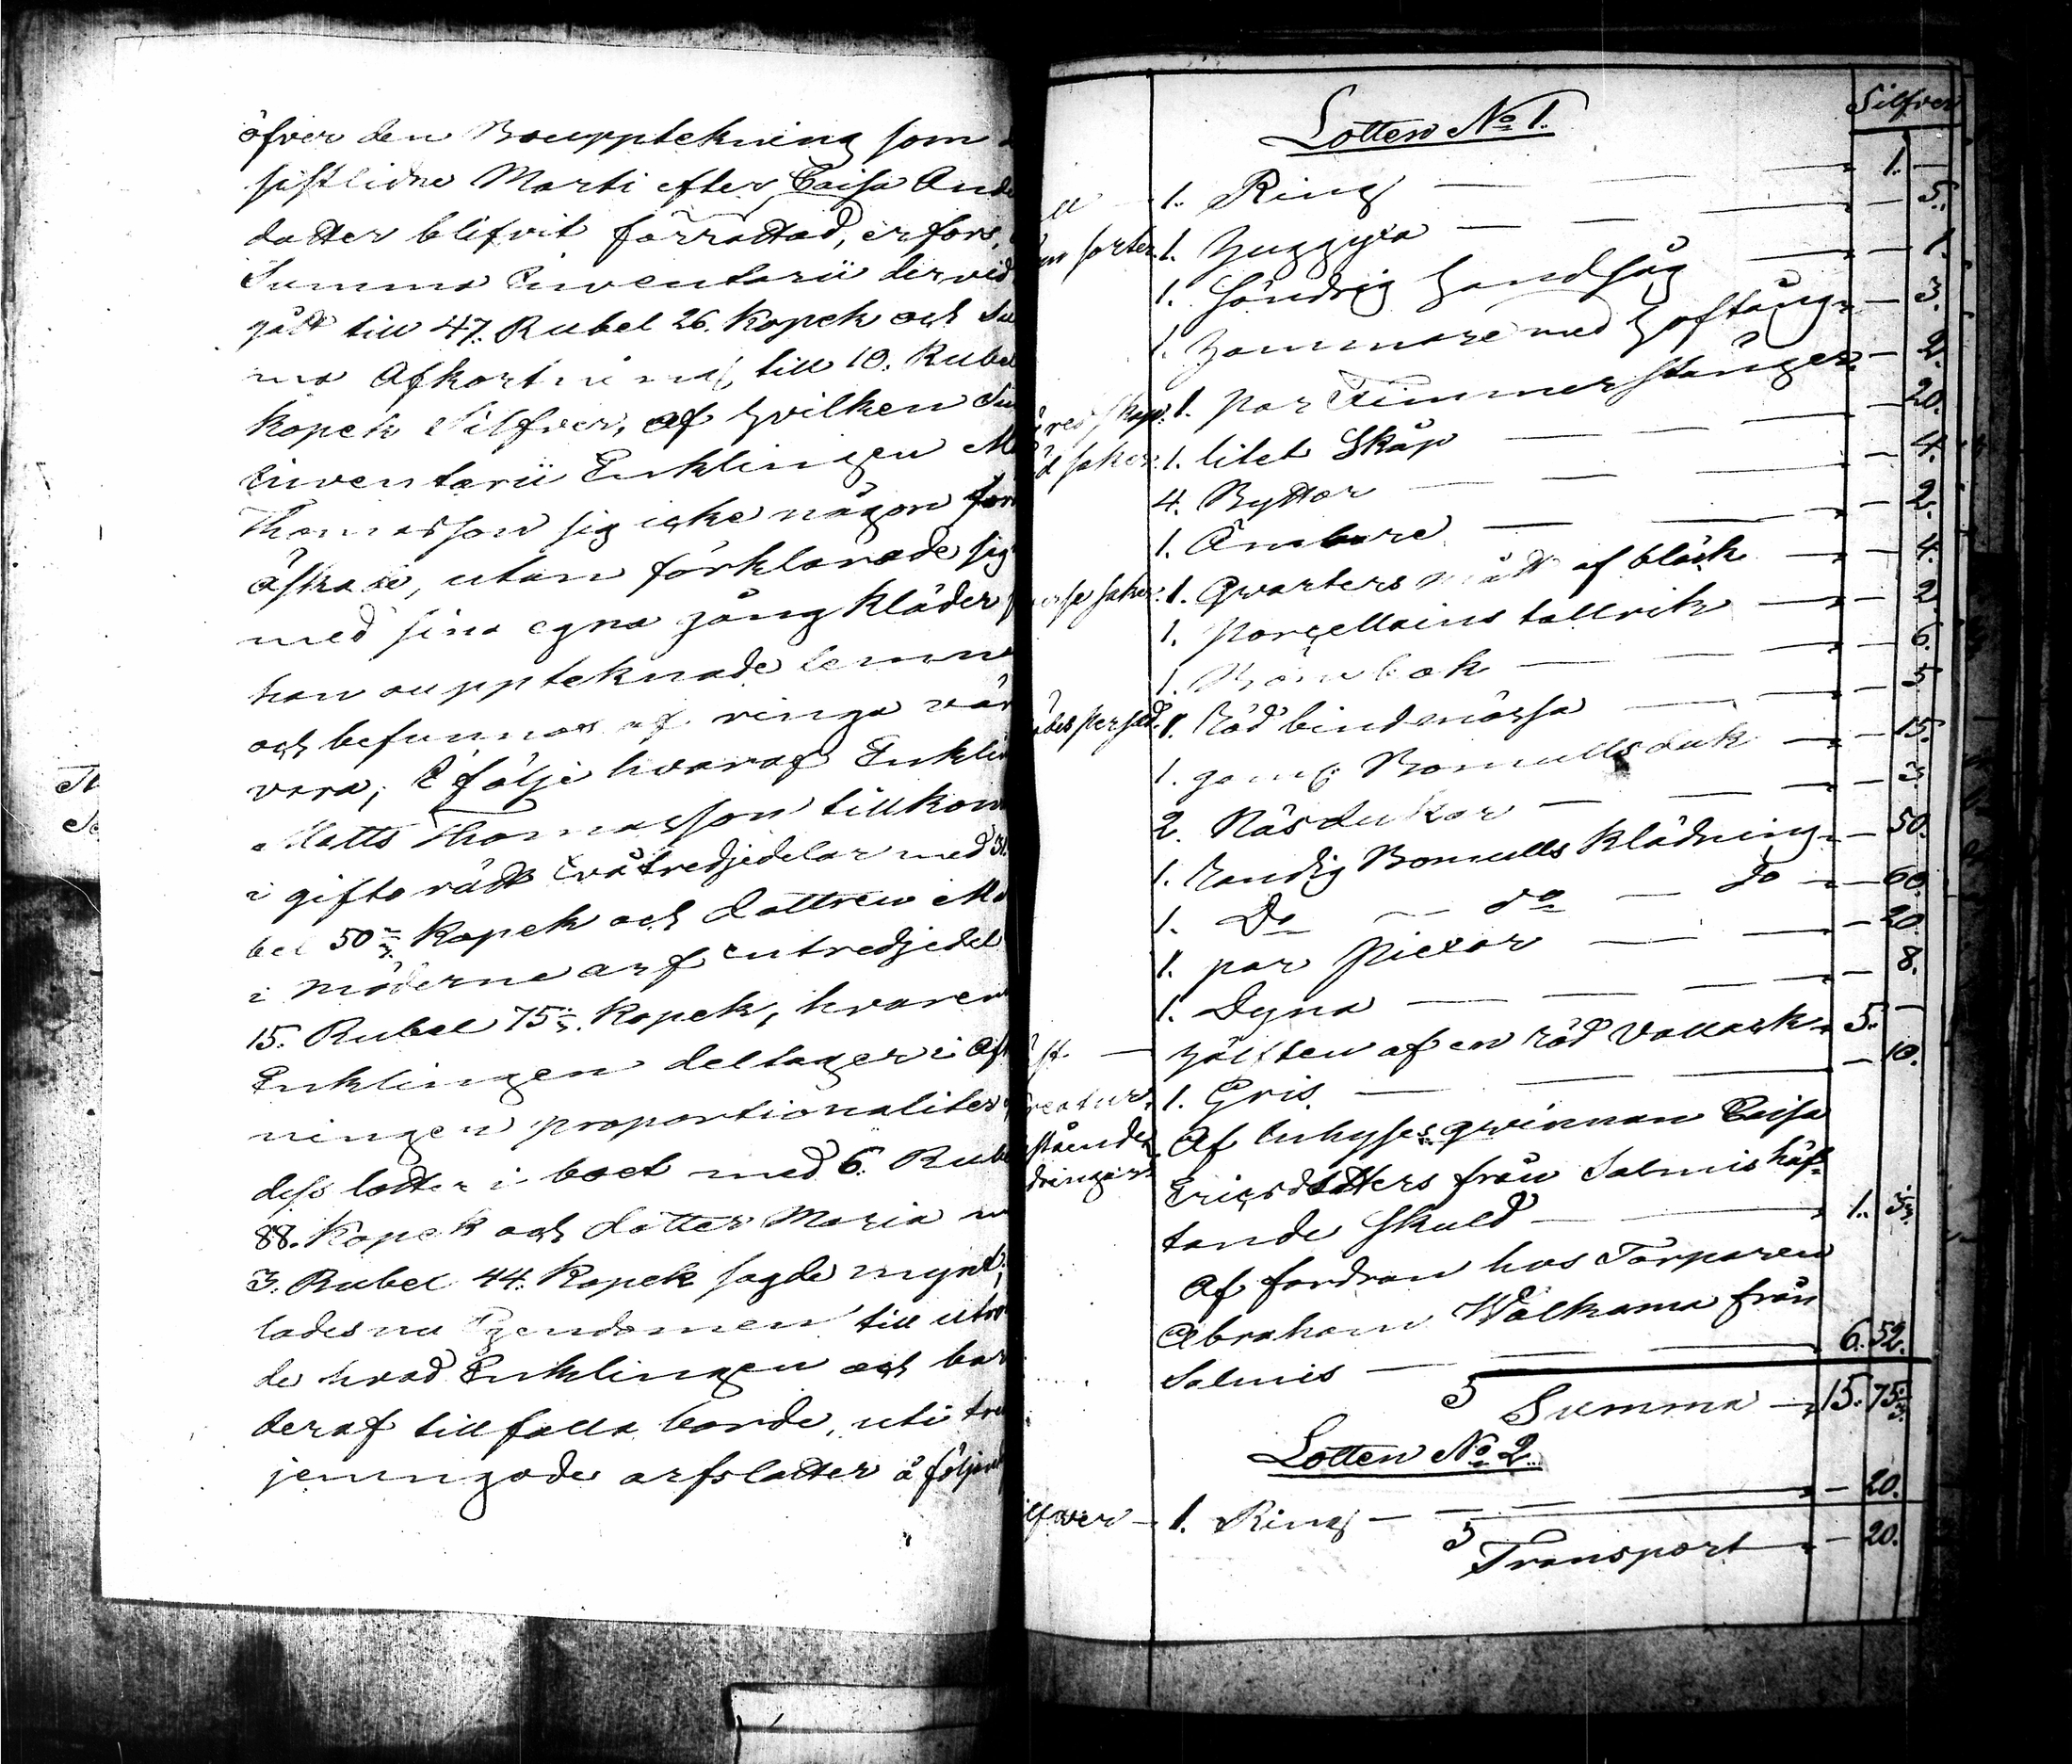 öfver den Bouppteckning som
sistlidne Marti efter Caisa Ande
dotter blifvit förrättad, erfors,
Summa Inventarii dervid
gådt till 47. Rubel 26. Kopek och Su
ma Afkortning till 10. Rubel
Kopek Silfver, af hvilken Su
Inventarii Enklingen M
Thomasson sig icke någon för
åstrade, utan förklarade sig
med sina egna gångkläder
han ouppteknade lemn
och befunnos af ringa vär
vara; I följe hvaraf Enklin
Matts Thomasson tillkom
i giftorätt tvåtredjedelar med 31.
bel 50 2/3 Kopek och dottren Ma
i möderne arf entredjedel
15. Rubel 75 1/3 Kopek, hvarem
Enklingen deltager i Afk
ningen proportionaliter
dess lotter i boet med 6. Rube
88. Kopek och dotter Maria m
3. Rubel 44. Kopek sagde mynt,
lades nu Egendomen till utrö
de hvad Enklingen och bar
deraf tillfalla borde, uti tre
jemngoda arfslotter å följand
Silfver
Lotten No 1.
1. Ring — 1. —
sorter. 1. Huggyxa — 5.
1. Söndrig handsåg — 1.
1. Hammare med Hoftång — 3.
1. par Timmerstänger — 2.
1. litet Skåp — 20.
saker. 4. Byttor — 4.
1. Ämbare — 2.
saker. 1. Qvartersmått af bläck — 4.
1. Porcellains tallrik — 2.
1. Bönbok — 6.
1. Röd bindmössa — 5.
1. gam: Bomullsduk — 15.
2. Näsdukar — 3.
1. Randig Bomulls Klädning — 50.
1. Do do do — 60.
1. par Piexor — 20.
1. Dyna — 8.
Hälften af en röd Vallack 5. —
Creatur. 1. Gris. — 10.
Af Inhyses qvinnan Caisa
Ericsdotters från Salmis häf-
tande Skuld — 1. 3 1/3
Af fordran hos Torparen
Abraham Walkama från
Salmis — 6. 52.
S Summa — 15. 75 1/3
Lotten No 2.
ilfver — 1. Ring — 20.
S Transport — 20.